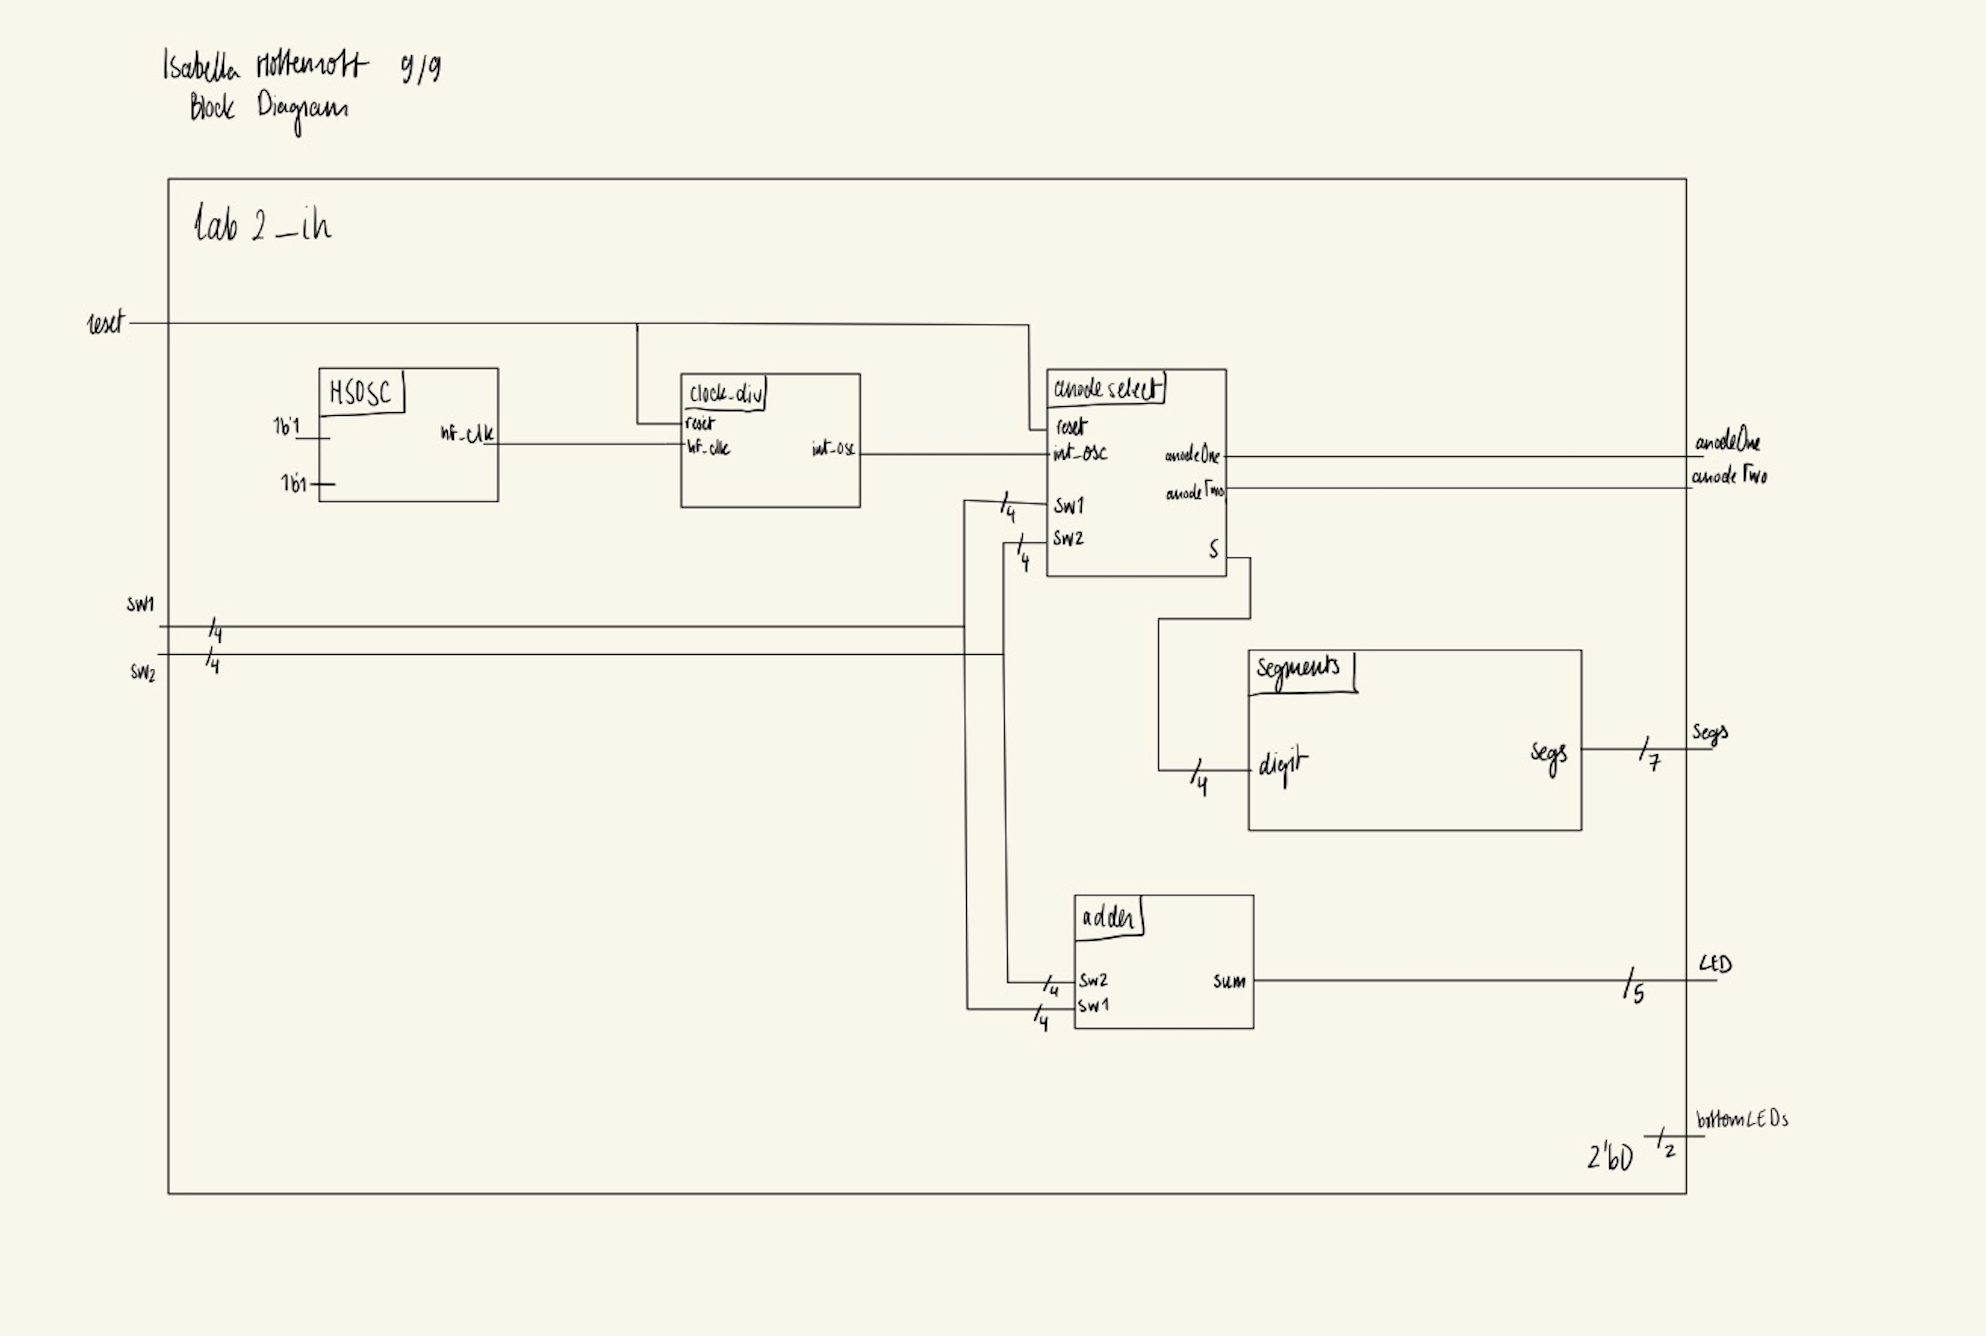 Isabella Hottenrott 9/9
Block Diagram
lab 2_ih
reset
HSOSC
1b'1
1b'1
hf_clk
clock_div
reset
hf_clk
int_osc
anode select
reset
int_osc
sw1
sw2
anodeOne
anodeTwo
S
/4
/4
anodeOne
anodeTwo
sw1
/4
/4
sw2
segments
digit
/4
segs
/7
segs
adder
sw2
sw1
/4
/4
sum
/5
LED
bottomLEDs
2'b0
/2